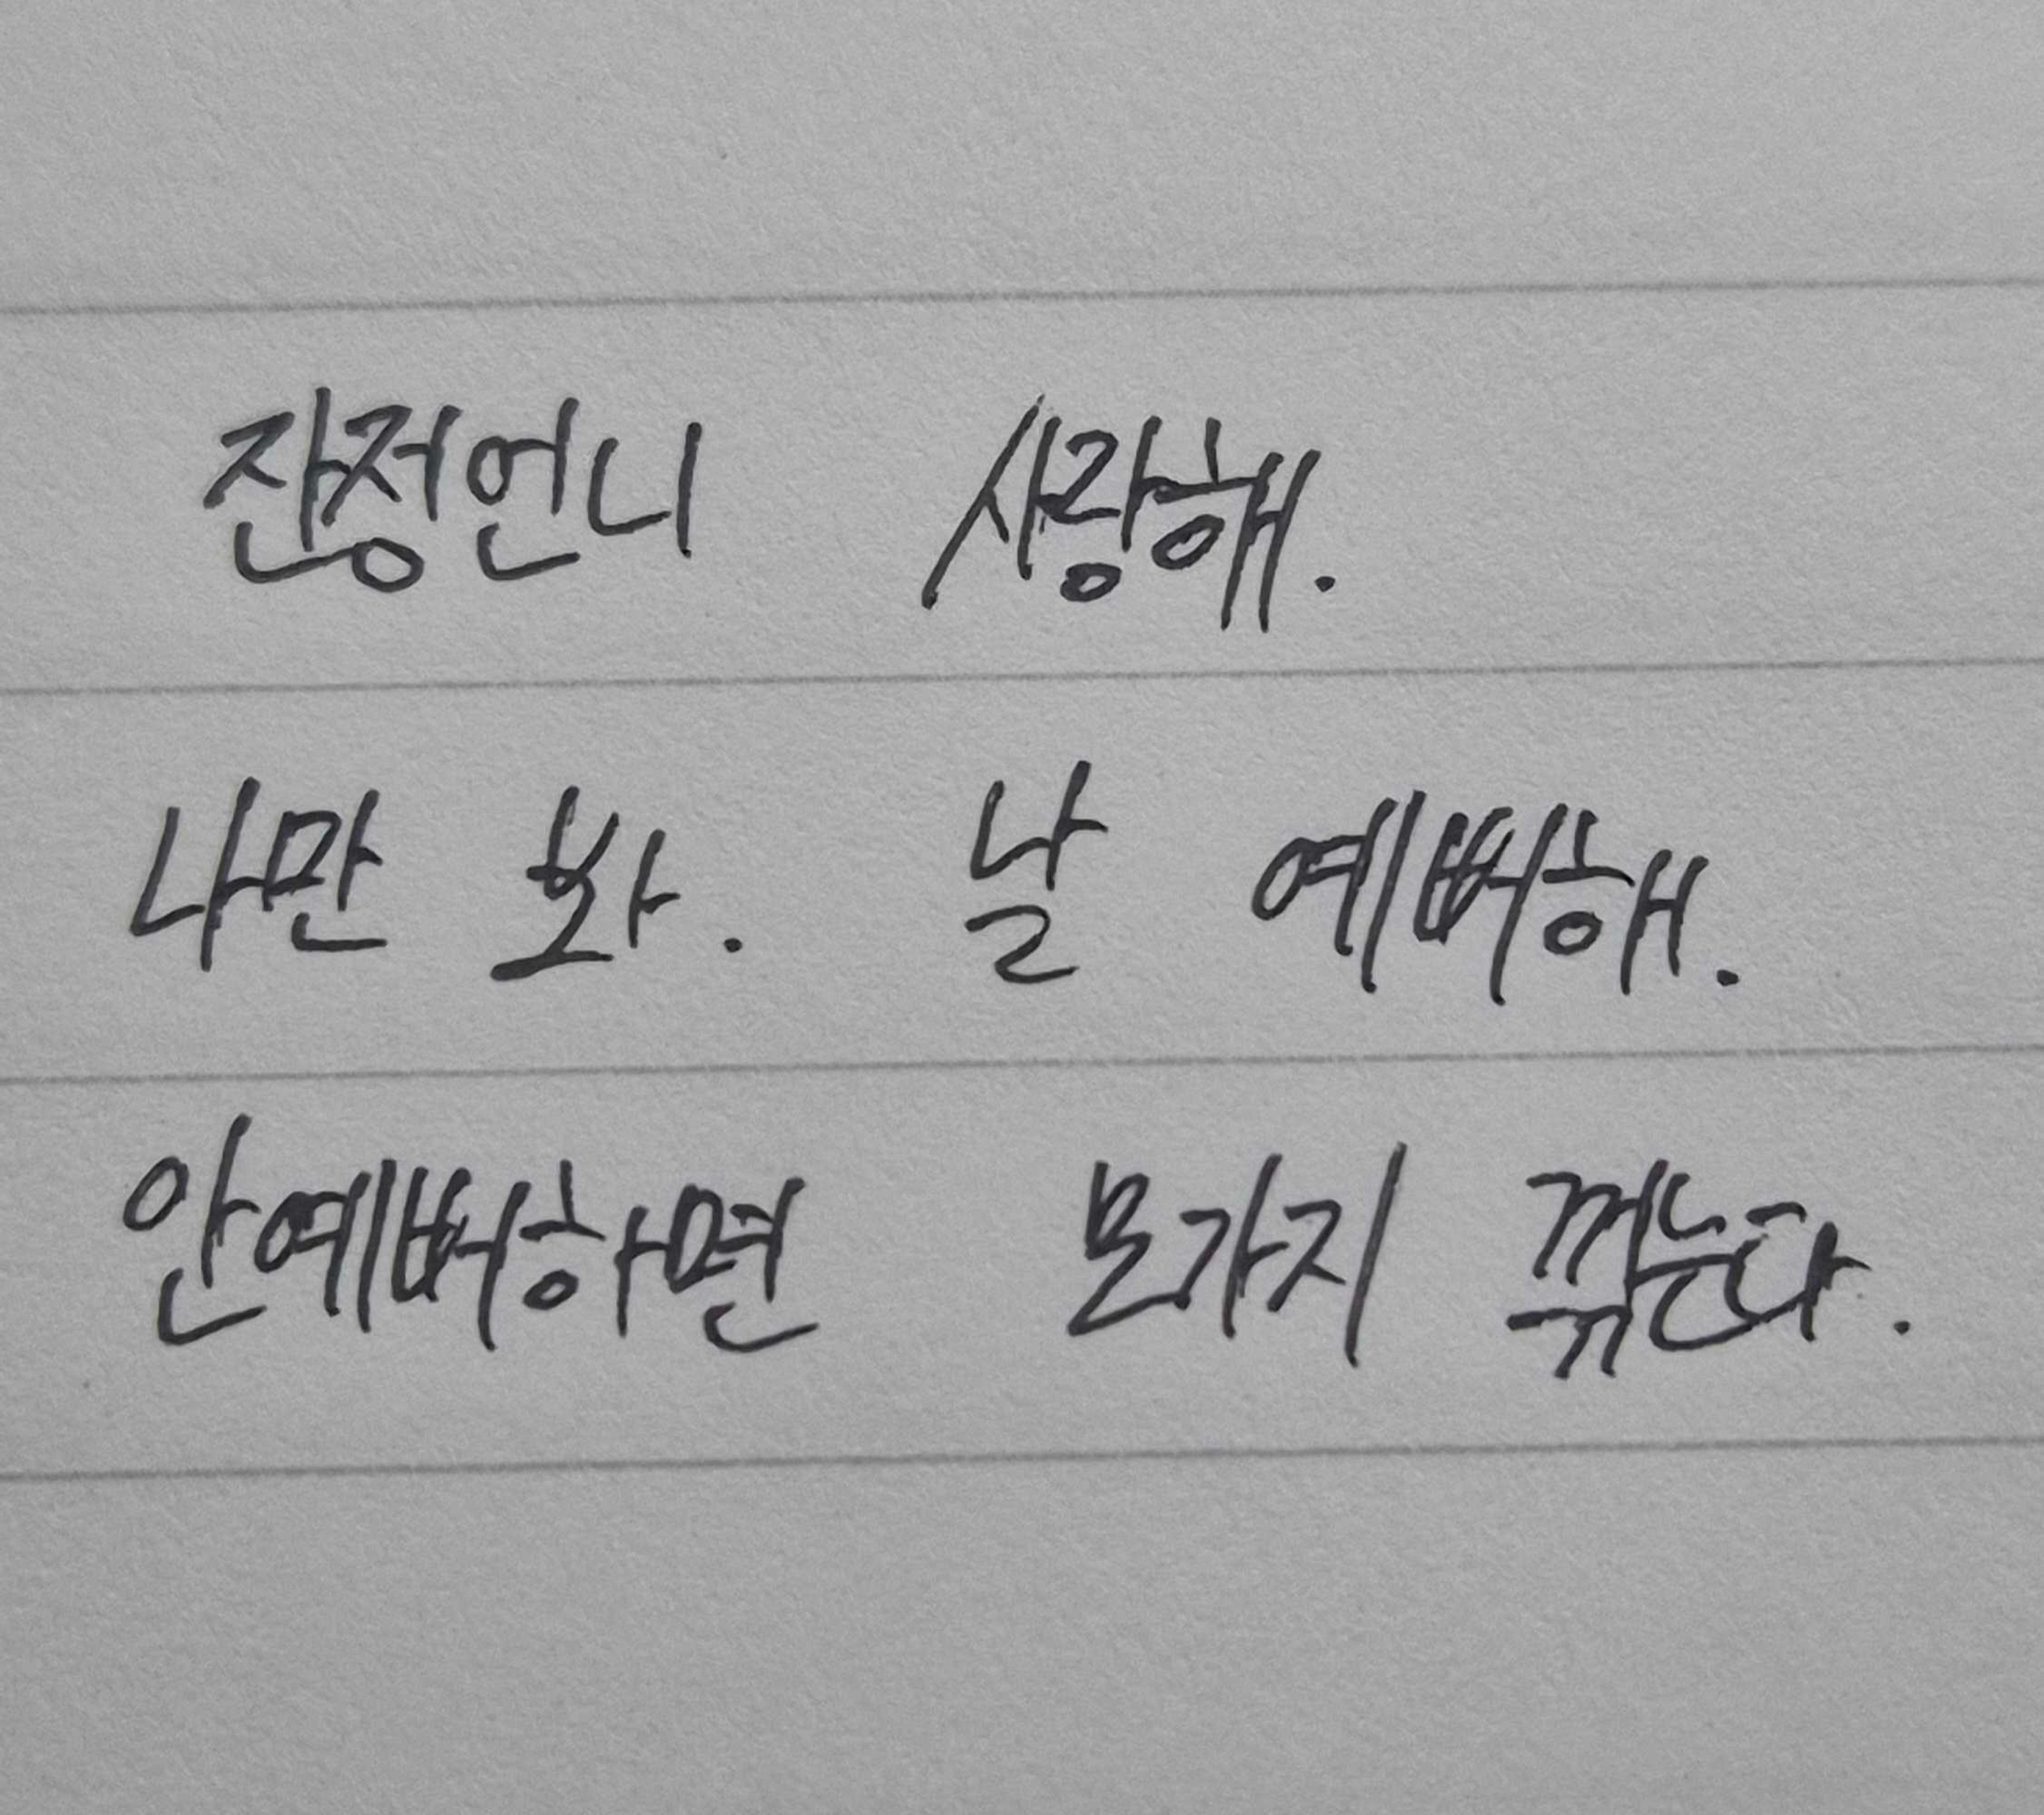 잔정언니 사랑해.
나만 봐. 날 예뻐해.
안예뻐하면 모가지 꺾는다.